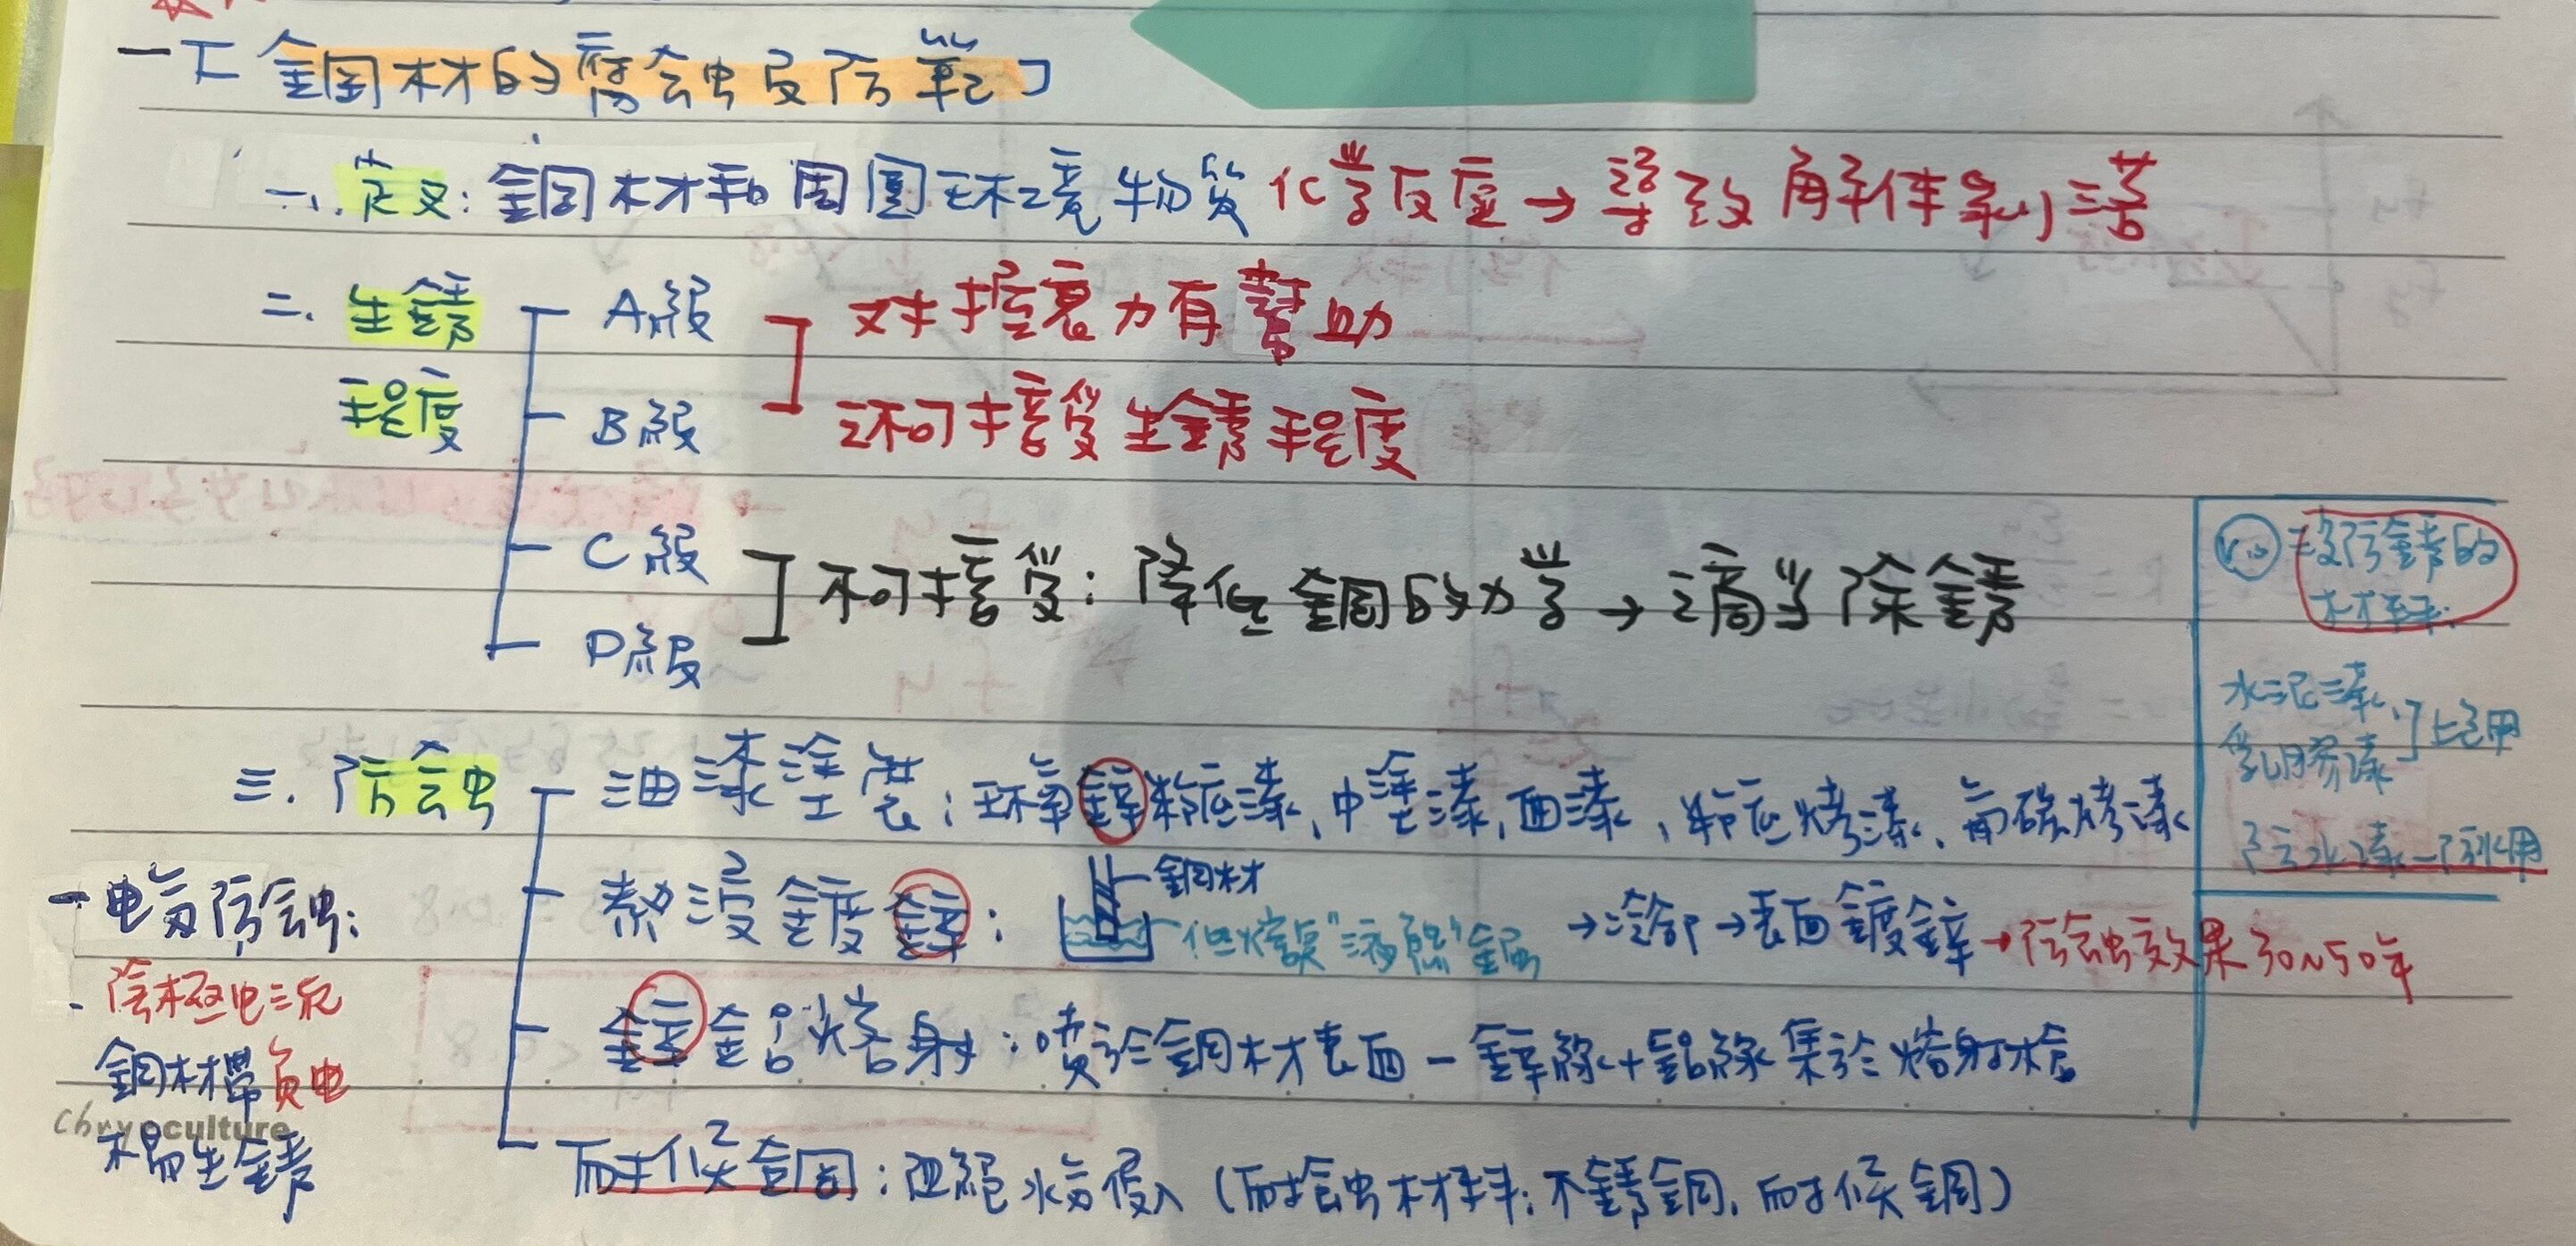 一「鋼材的腐蝕及防範」
一、定义：鋼材和周圍环境物質化學反應→導致解体剝落
二. 生銹程度
A級
B級
对握裹力有幫助
还可接受生銹程度
C級
D級
不可接受：降低鋼的力學→適当除銹
三. 防蝕
油漆塗裝：环氧鋅粉底漆、中塗漆、面漆、粉底烤漆、氟碳烤漆
熱浸鍍鋅：
鋼材
低熔點"液態"金屬
→冷卻→表面鍍鋅→防蝕效果30~50年
鋅鋁熔射：噴於鋼材表面－鋅線+鋁線集於熔射槍
耐候鋼：阻絕水氣侵入（耐蝕材料：不銹鋼、耐候鋼）
一电氣防蝕：
陰極电流
鋼材帶負电
不易生銹
chryoculture
防銹的材料
水泥漆、
乳膠漆
上色用
防水漆－防水用